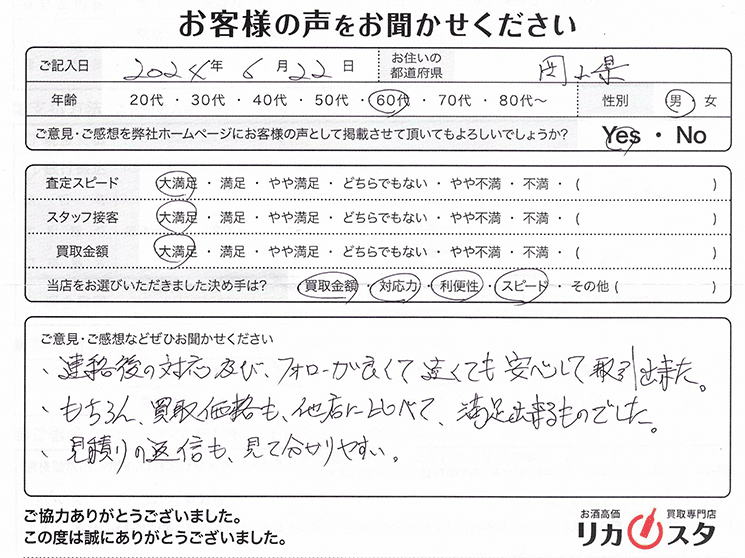 お客様の声をお聞かせください
ご記入日 2024年 6月22日 お住いの都道府県 岡山県
年齢 20代・30代・40代・50代・60代・70代・80代〜 性別 男・女
ご意見・ご感想を弊社ホームページにお客様の声として掲載させて頂いてもよろしいでしょうか? Yes・No
査定スピード 大満足・満足・やや満足・どちらでもない・やや不満・不満・( )
スタッフ接客 大満足・満足・やや満足・どちらでもない・やや不満・不満・( )
買取金額 大満足・満足・やや満足・どちらでもない・やや不満・不満・( )
当店をお選びいただきました決め手は? 買取金額・対応力・利便性・スピード・その他( )
ご意見・ご感想などぜひお聞かせください
、連絡後の対応及び、フォローが良くて遠くても安心して取引出来た。
、もちろん、買取価格も、他店に比べて、満足出来るものでした。
、見積りの返信も、見て分かりやすい。
ご協力ありがとうございました。
この度は誠にありがとうございました。
お酒高価 買取専門店
リカスタ